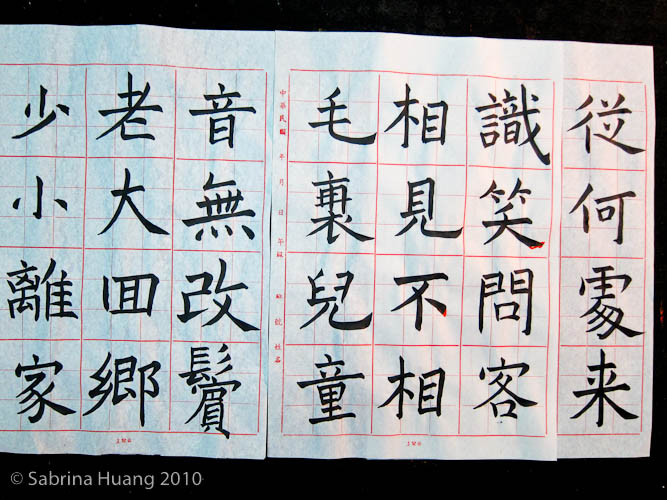 少小離家
老大囬鄉
音無改鬢
中華民國 年 月 日 年級 班 號 姓名
毛衰兒童
相見不相
識笑問客
從何處来
© Sabrina Huang 2010